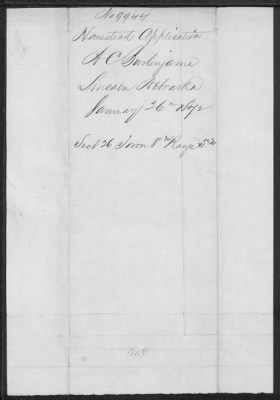 No 9944
Homestead Application
A C Burlinjame
Lincoln Nebraska
January 26th 1872
Sect 26 Town 8 Range 5